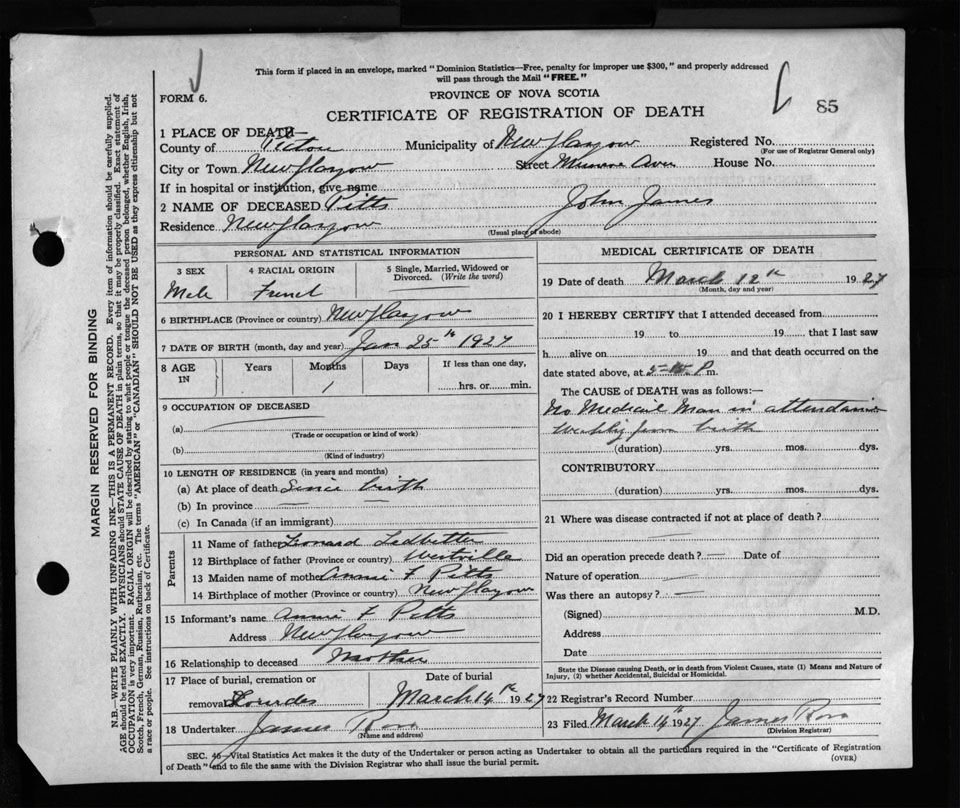 This form if placed in an envelope, marked "Dominion Statistics—Free, penalty for improper use $300," and properly addressed
will pass through the Mail "FREE."
FORM 6.
PROVINCE OF NOVA SCOTIA
CERTIFICATE OF REGISTRATION OF DEATH
85
1 PLACE OF DEATH—
County of Pictou Municipality of New Glasgow Registered No.
(For use of Registrar General only)
City or Town New Glasgow Street Munroe Aven House No.
If in hospital or institution, give name
2 NAME OF DECEASED Pitts John James
Residence New Glasgow
(Usual place of abode)
PERSONAL AND STATISTICAL INFORMATION
3 SEX 4 RACIAL ORIGIN 5 Single, Married, Widowed or
Divorced. (Write the word)
Male French
6 BIRTHPLACE (Province or country) New Glasgow
7 DATE OF BIRTH (month, day and year) Jan 25th 1927
8 AGE Years Months Days If less than one day,
IN 1 hrs. or min.
9 OCCUPATION OF DECEASED
(a)
(Trade or occupation or kind of work)
(b)
(Kind of industry)
10 LENGTH OF RESIDENCE (in years and months)
(a) At place of death Since birth
(b) In province
(c) In Canada (if an immigrant)
Parents
11 Name of father Leonard Ledbetter
12 Birthplace of father (Province or country) Westville
13 Maiden name of mother Annie F Pitts
14 Birthplace of mother (Province or country) New Glasgow
15 Informant's name Annie F Pitts
Address New Glasgow
16 Relationship to deceased Mother
17 Place of burial, cremation or Date of burial
removal Lourdes March 14th 1927
18 Undertaker James Ross
(Name and address)
MEDICAL CERTIFICATE OF DEATH
19 Date of death March 12th 1927
(Month, day and year)
20 I HEREBY CERTIFY that I attended deceased from
19 to 19 that I last saw
h alive on 19 and that death occurred on the
date stated above, at 5 P m.
The CAUSE of DEATH was as follows:—
No Medical Man in attendance
Weakly from birth
(duration) yrs. mos. dys.
CONTRIBUTORY
(duration) yrs. mos. dys.
21 Where was disease contracted if not at place of death?
Did an operation precede death? — Date of
Nature of operation
Was there an autopsy? —
(Signed) M.D.
Address
Date
State the Disease causing Death, or in death from Violent Causes, state (1) Means and Nature of
Injury, (2) whether Accidental, Suicidal or Homicidal.
22 Registrar's Record Number
23 Filed March 14th 1927 James Ross
(Division Registrar)
SEC. 46—Vital Statistics Act makes it the duty of the Undertaker or person acting as Undertaker to obtain all the particulars required in the "Certificate of Registration
of Death" and to file the same with the Division Registrar who shall issue the burial permit.
(OVER)
MARGIN RESERVED FOR BINDING
N.B.—WRITE PLAINLY WITH UNFADING INK—THIS IS A PERMANENT RECORD. Every item of information should be carefully supplied.
AGE should be stated EXACTLY. PHYSICIANS should STATE CAUSE OF DEATH in plain terms, so that it may be properly classified. Exact statement of
OCCUPATION is very important. RACIAL ORIGIN will be described by stating to what people or tongue the deceased person belonged, whether English, Irish,
Scotch, French, German, Russian, Ruthenian, etc. The terms "AMERICAN" or "CANADIAN" SHOULD NOT BE USED as they express citizenship but not
a race or people. See instructions on back of Certificate.